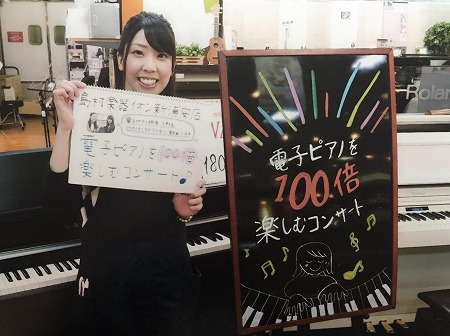 島村楽器イオン新浦安店
電子ピアノを100倍
楽しむコンサート♪
180
電子ピアノを
100倍
楽しむコンサート
Roland